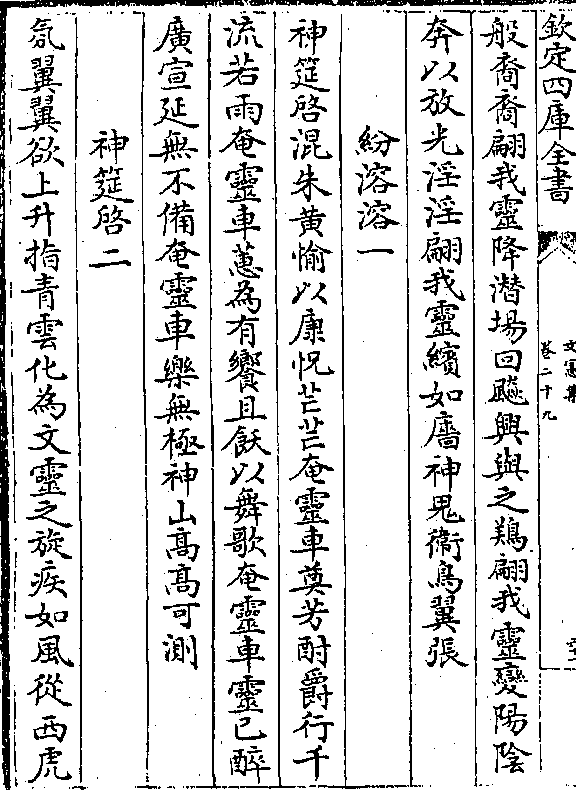 欽定四庫全書
文憲集
卷二十九
般裔裔翩我靈降潛場回飈興與之鶈翩我靈變陽陰
奔以放光淫淫翩我靈繽如廧神鬼衞鳥翼張
紛溶溶一
神筵啓混朱黄愉以康怳芒芒奄靈車奠芳酎爵行千
流若雨奄靈車蕙為有饗且飫以舞歌奄靈車靈已醉
廣宣延無不備奄靈車樂無極神山髙髙可測
神筵啓二
氛翼翼欲上升揥青雲化為文靈之旋疾如風從西虎